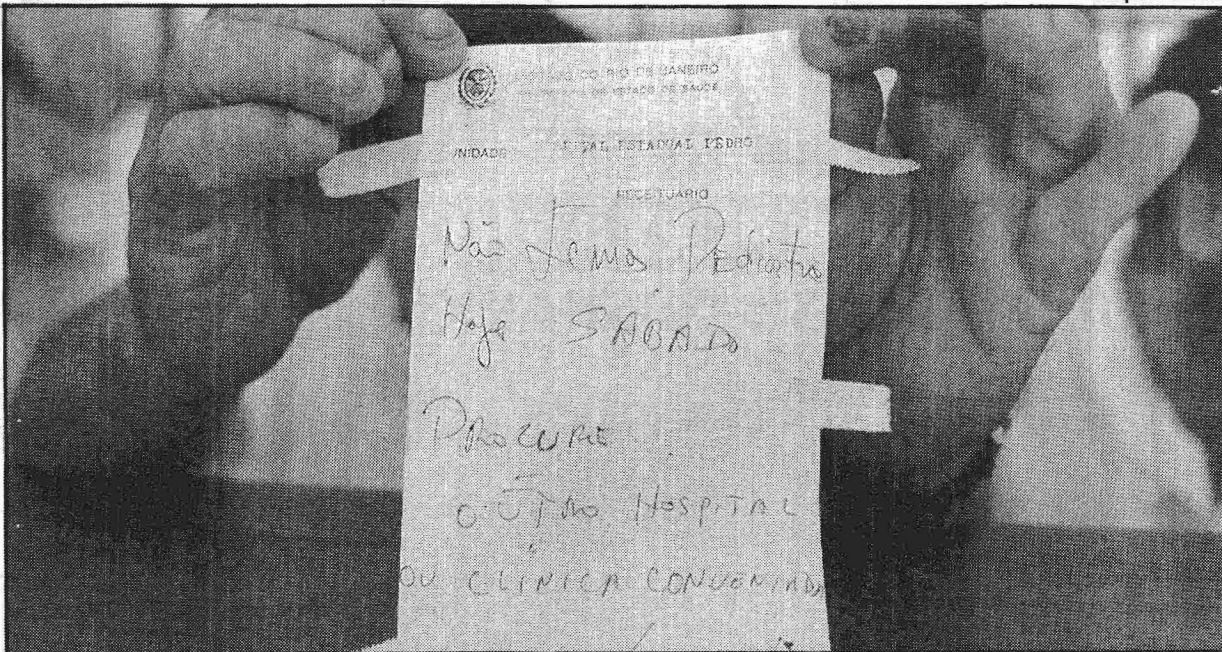 DO RIO DE JANEIRO
DE ESTADO DE SAÚDE
UNIDADE
ESTADUAL PEDRO
RECEITUÁRIO
Não Temos Pediatra
Hoje SABADO
PROCURE
OUTRO HOSPITAL
OU CLINICA CONVENIADA